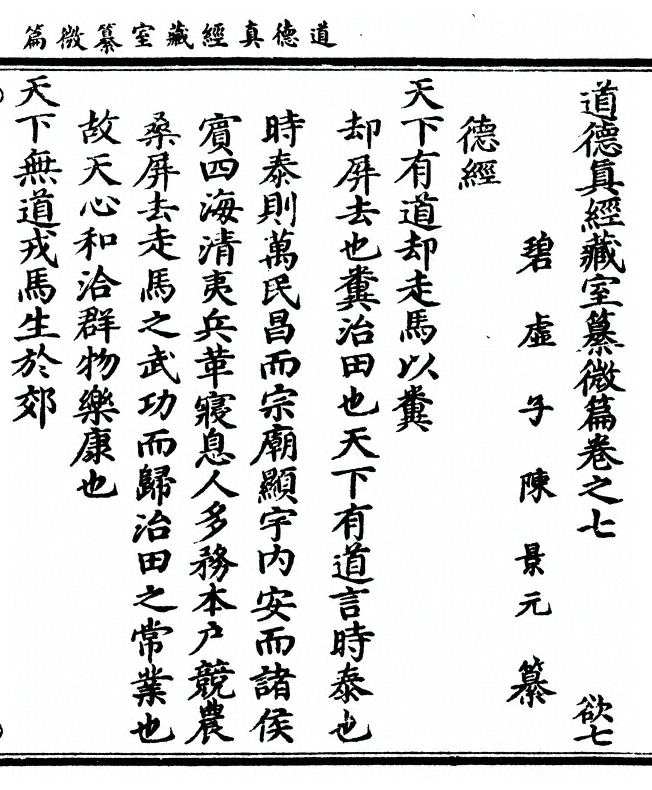 道德真經藏室纂微篇
道德眞經藏室纂微篇卷之七　欲七
碧虛子陳景元纂
德經
天下有道却走馬以糞
却屏去也糞治田也天下有道言時泰也
時泰則萬民昌而宗廟顯宇内安而諸侯
賓四海清夷兵革寢息人多務本户競農
桑屏去走馬之武功而歸治田之常業也
故天心和洽群物樂康也
天下無道戎馬生於郊